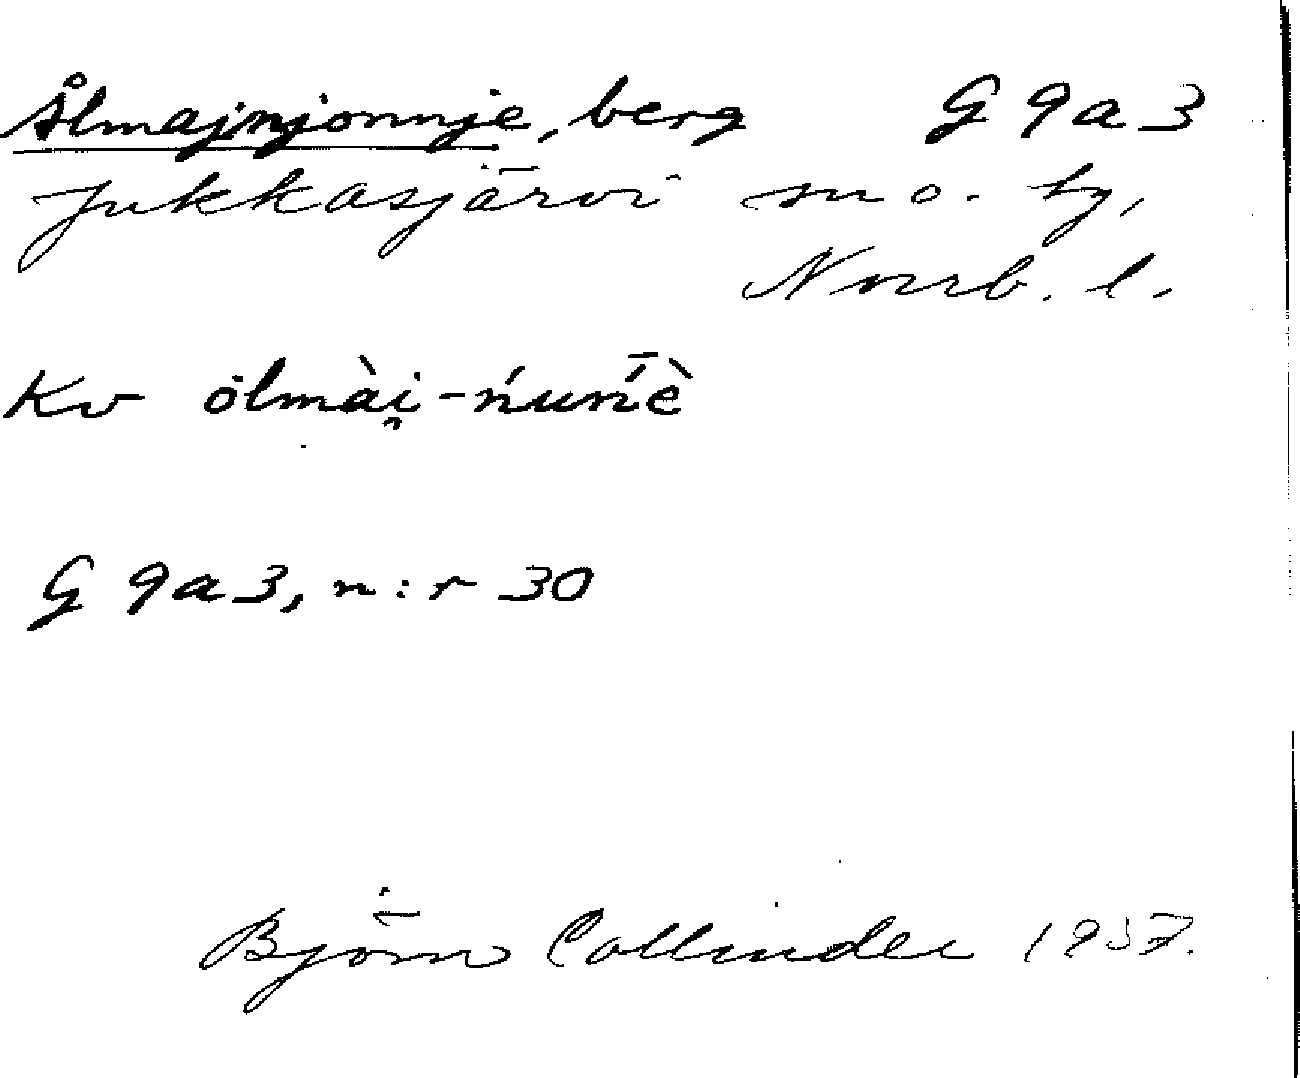 Ålmajnjonnje, berg G 9a 3
Jukkasjärvi sn o. tg,
Norrb. l.
Kv ålmài̯-ńuńńè
G 9a3, n:r 30
Björn Collinder 1937.